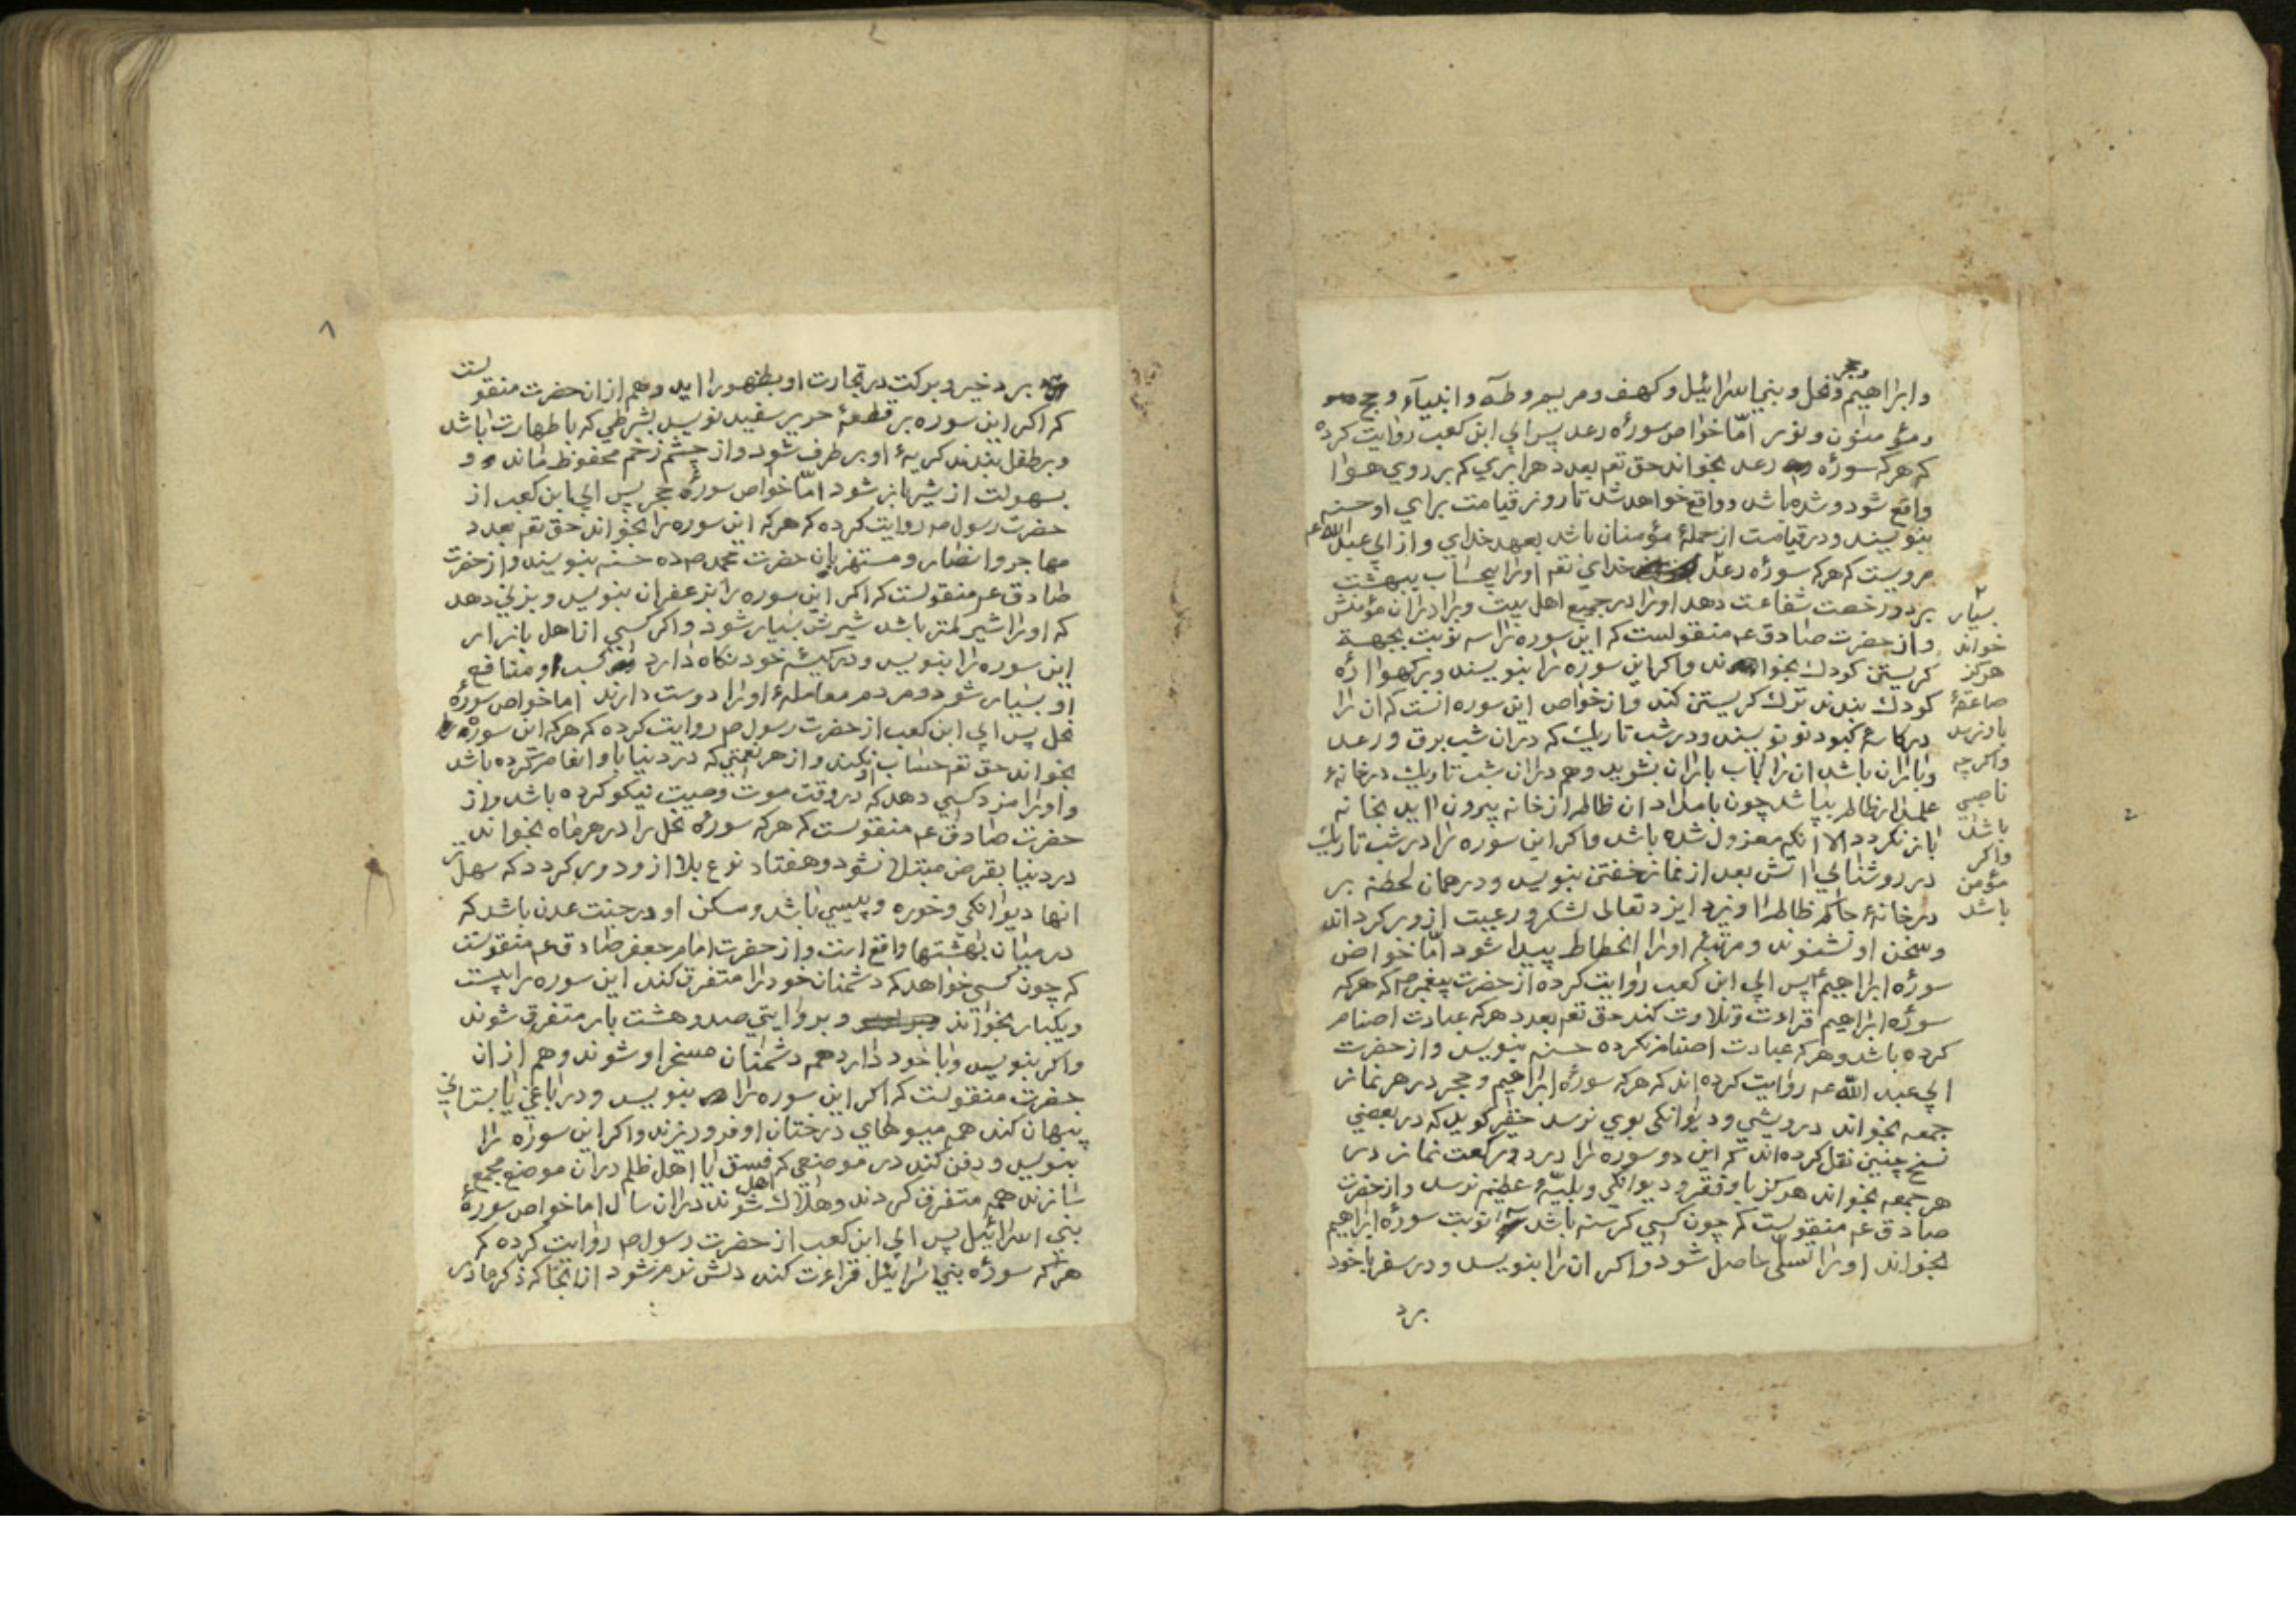 وحجر
وابراهیم و نحل وبني اسرائیل و کهف و مریم و طه و انبیاء و حج
ومؤمنون و نور امّا خواص سورهٔ رعد پس ابي ابن کعب روایت کرده
که هرکه سورهٔ رعد بخواند حق تعم بعدد هر ابري که بر روي هوا
واقع شود و شده باشد و واقع خواهد شد تا روز قیامت براي او حسنه
بنویسند و در قیامت از جملهٔ مؤمنان باشد بعهد خداي و از ابي عبد الله عم
مرویست که هرکه سورهٔ رعد خداي تعم اورا بیحساب ببهشت
برد و رخصت شفاعت دهد اورا در جمیع اهل بیت و برادران مؤمنش
و از حضرت صادق عم منقولست که این سوره را سه نوبت بجهة
کریستن کودك بخوانند و اکر این سوره را بنویسند و بر کهوارهٔ
کودك بندند ترك کریستن کند و از خواص این سوره انست که ان را
در کاسهٔ کبود نو نویسند و در شب تاریك که در ان شب برق و رعد
و باران باشد ان را باب باران بشوید و هم در ان شب تاریك در خانهٔ
عملدار ظالم بپاشد چون بامداد ان ظالم از خانه بیرون اید بخانه
باز نکردد الا انکه معزول شده باشد و اکر این سوره را در شب تاریك
در روشنائي اتش بعد از نماز خفتن بنویسد و در همان لحظه بر
در خانهٔ حاکم ظالم اویزد ایزد تعالی لشکر و رعیت از و بر کرداند
و سخن او نشنوند و مرتبهٔ اورا انحطاط پیدا شود امّا خواص
سورهٔ ابراهیم پس ابي ابن کعب روایت کرده از حضرت پیغمبر صم که هرکه
سورهٔ ابراهیم قراءت و تلاوت کند حق تعم بعدد هرکه عبادت اصنام
کرده باشد و هرکه عبادت اصنام نکرده حسنه بنویسد و از حضرت
ابي عبد الله عم روایت کرده اند که هرکه سورهٔ ابراهیم و حجر در هر نماز
جمعه بخواند درویشي و دیوانکي بوي نرسد حقیر کوید که در بعضي
نسخ چنین نقل کرده اند که این دو سوره را در دو رکعت نماز در
هر جمعه بخواند هرکز باو فقر و دیوانکي و بلیّهٔ عظیم نرسد و از حضرت
صادق عم منقولست که چون کسي کرسنه باشد نوبت سورهٔ ابراهیم
بخواند اورا تسلّي حاصل شود و اکر ان را بنویسد و در سفر با خود
برد
بسیار
خواند
هرکز
صاعقهٔ
باو نرسد
واکرچه
ناصبي
باشد
واکر
مؤمن
باشد
برد خیر و برکت در تجارت او بظهور اید و هم از ان حضرت منقولست
که اکر این سوره بر قطعهٔ حریر سفید نویسد بشرطي که با طهارت باشد
و بر طفل بندند کریهٔ او بر طرف شود و از چشم زخم محفوظ ماند و
بسهولت از شیر باز شود امّا خواص سورهٔ حجر پس ابي ابن کعب از
حضرت رسول صم روایت کرده که هرکه این سوره را بخواند حق تعم بعدد
مهاجر و انصار و مستهزیان حضرت محمد صم ده حسنه بنویسد و از حضرت
صادق عم منقولست که اکر این سوره را بزعفران بنویسد و بزني دهد
که اورا شیر کمتر باشد شیرش بسیار شود و اکر کسي از اهل بازار
این سوره را بنویسد و در کیسهٔ خود نکاه دارد کسب او و منافع
او بسیار شود و مردم معاملهٔ اورا دوست دارند اما خواص سورهٔ
نحل پس ابي ابن کعب از حضرت رسول صم روایت کرده که هرکه این سوره را
بخواند حق تعم حساب نکند و از هر نعمتي که در دنیا باو انعام کرده باشد
و اورا مزد کسي دهد که در وقت موت وصیت نیکو کرده باشد و از
حضرت صادق عم منقولست که هرکه سورهٔ نحل را در هر ماه بخواند
در دنیا بقرض مبتلا نشود و هفتاد نوع بلا از و دور کردد که سهلتر
انها دیوانکي و خوره و پیسي باشد و مسکن او در جنت عدن باشد که
در میان بهشتها واقع است و از حضرت امام جعفر صادق عم منقولست
که چون کسي خواهد که دشمنان خود را متفرق کند این سوره را بیست
و یکبار بخواند و بروایتي صد و هشت بار متفرق شوند
و اکر بنویسد و با خود دارد هم دشمنان مسخر او شوند و هم از ان
حضرت منقولست که اکر این سوره را بنویسد و در باغي یا بستاني
پنهان کند همه میوهاي درختان او فرو ریزند و اکر این سوره را
بنویسد و دفن کند در موضعي که فسق یا اهل ظلم در ان موضع مجمع
سازند همه متفرق کردند و هلاك شوند در ان سال اما خواص سورهٔ
بني اسرائیل پس ابي ابن کعب از حضرت رسول صم روایت کرده که
هرکه سورهٔ بني اسرائیل قراءت کند دلش نرم شود از انجا که ذکر مادر